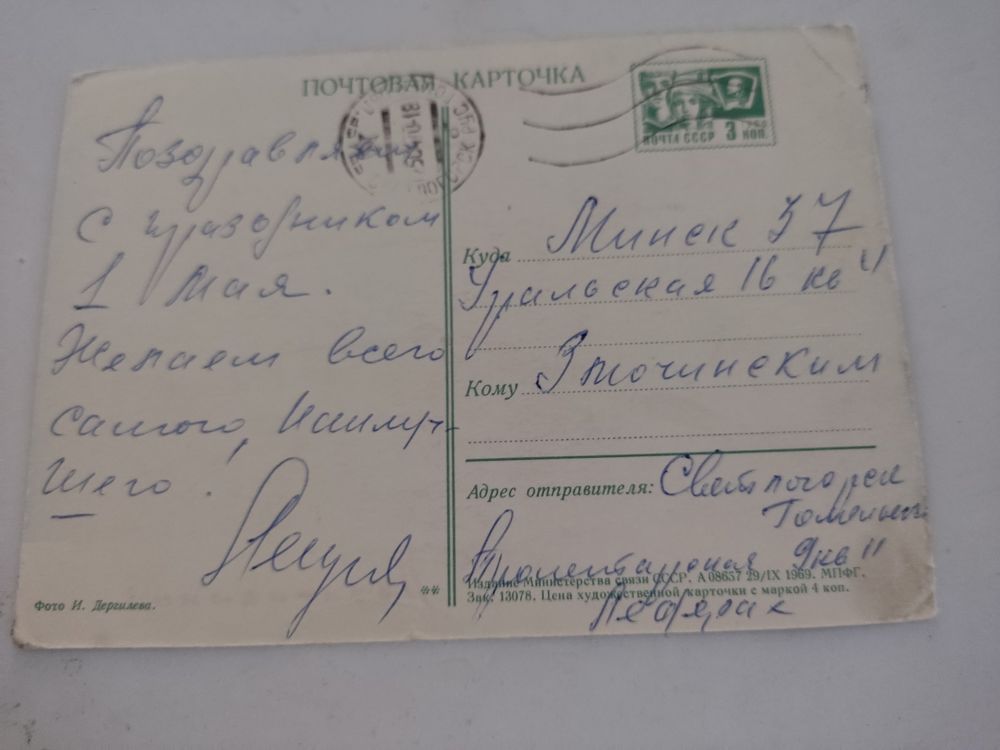 ПОЧТОВАЯ КАРТОЧКА
ПОЧТА СССР 3 КОП.
Поздравляем
с праздником
1 Мая.
Желаем всего
самого, наилуч-
шего!
Фото И. Дергилева.
Куда Минск 37
Уральская 16 кв 11
Кому
Адрес отправителя: Светлогорск
Гомельск
Пролетарская 9 кв 11
Издание Министерства связи СССР. А 08657 29/IX 1969. МПФГ.
Зак. 13078. Цена художественной карточки с маркой 4 коп.